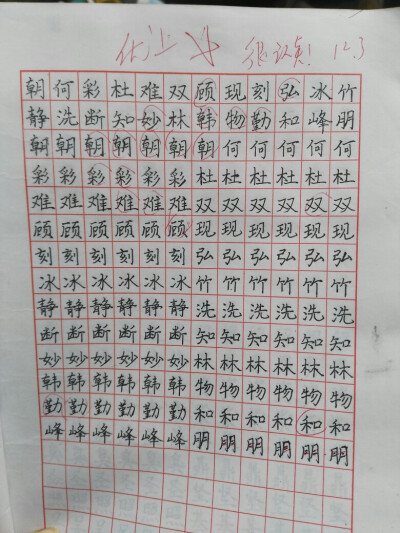 优上 很认真! 12.3
朝何彩杜难双顾现刻弘冰竹
静洗断知妙林韩物勤和峰朋
朝朝朝朝朝朝朝何何何何何
彩彩彩彩彩彩杜杜杜杜杜杜
难难难难难难双双双双双双
顾顾顾顾顾顾现现现现现现
刻刻刻刻刻刻弘弘弘弘弘弘
冰冰冰冰冰冰竹竹竹竹竹竹
静静静静静静洗洗洗洗洗洗
断断断断断断知知知知知知
妙妙妙妙妙妙林林林林林林
韩韩韩韩韩韩物物物物物物
勤勤勤勤勤勤和和和和和和
峰峰峰峰峰峰朋朋朋朋朋朋